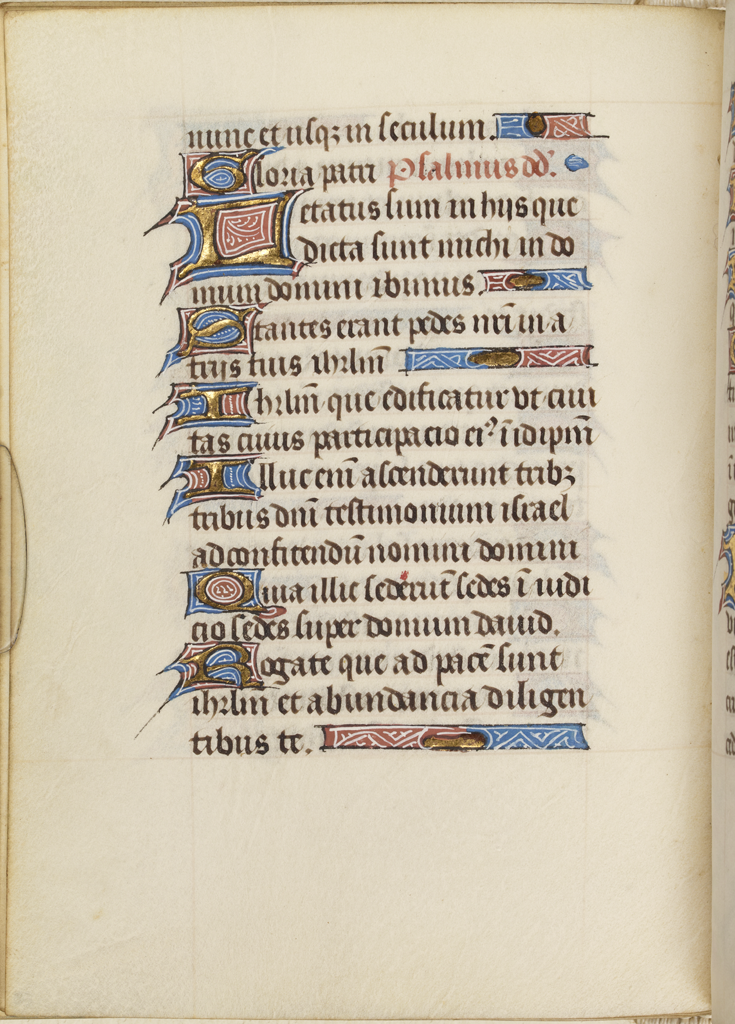 nunc et usqꝫ in seculum.
Gloria patri Psalmus dd̄.
Letatus sum in hijs que
dicta sunt michi in do
mum domini ibimus.
Stantes erant pedes nr̄i in a
trijs tuis ihrl̄m
Ihrl̄m que edificatur vt ciui
tas cuius participacio eiꝰ ī idip̄m
Illuc enī ascenderunt tribꝫ
tribus dn̄i testimonium israel
ad confitendū nomini domini
Quia illic sederūt sedes ī iudi
cio sedes super domum dauid.
Rogate que ad pacē sunt
ihrl̄m et abundancia diligen
tibus te.